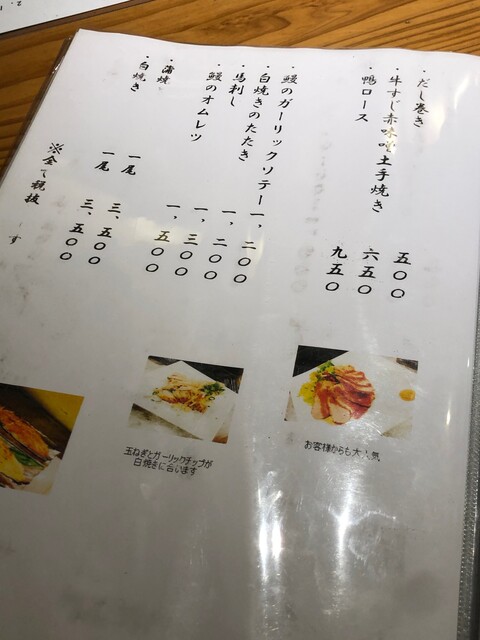 ・だし巻き　五〇〇
・牛すじ赤味噌土手焼き　六五〇
・鴨ロース　九五〇
・鰻のガーリックソテー　一、二〇〇
・白焼きのたたき　一、二〇〇
・馬刺し　一、三〇〇
・鰻のオムレツ　一、五〇〇
・蒲焼　一尾　三、五〇〇
・白焼き　一尾　三、五〇〇
※全て税抜
す
お客様からも大人気
玉ねぎとガーリックチップが
白焼きに合います